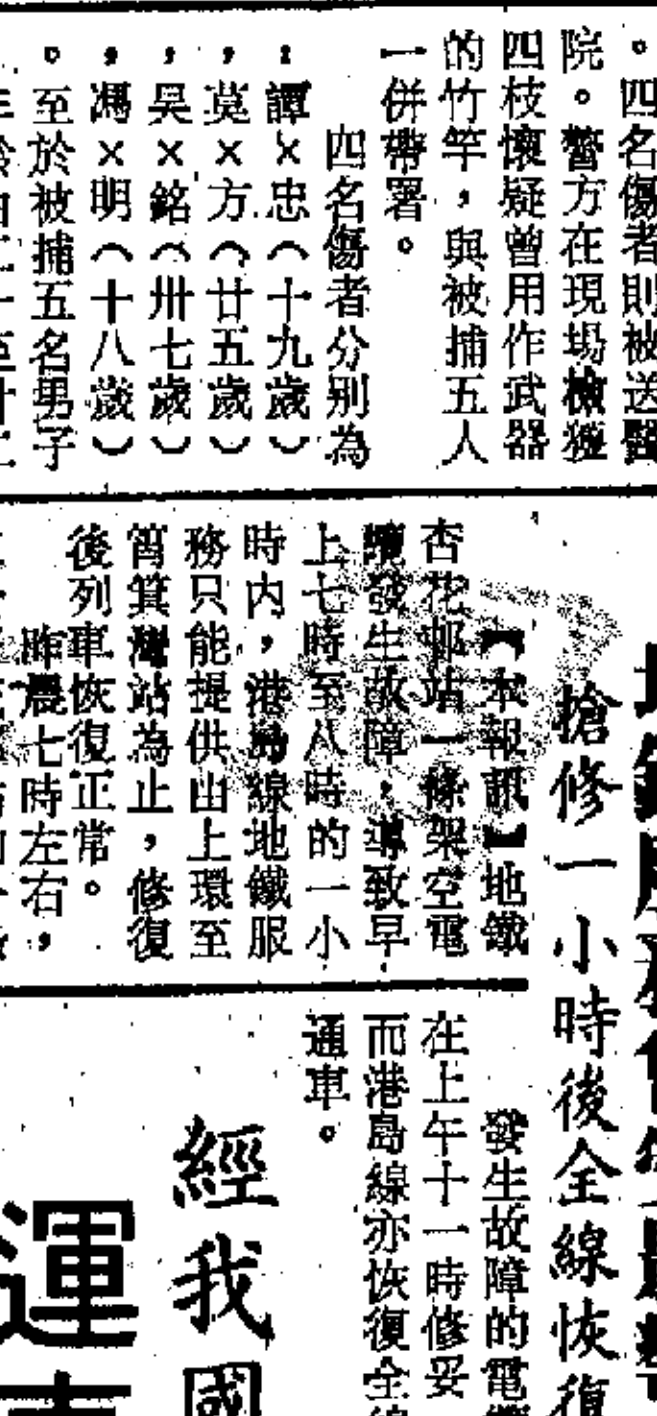 。四名傷者則被送醫
院。警方在現場檢獲
四枝懷疑曾用作武器
的竹竿，與被捕五人
一併帶署。
四名傷者分別為
：譚×忠（十九歲）
，莫×方（廿五歲）
，吳×銘（卅七歲）
，馮×明（十八歲）
。至於被捕五名男子
搶修一小時後全線恢復
【本報訊】地鐵
杏花邨站一條架空電
纜發生故障，導致早
上七時至八時的一小
時內，港島線地鐵服
務只能提供由上環至
筲箕灣站為止，修復
後列車恢復正常。
昨晨七時左右，
發生故障的電纜
在上午十一時修妥
而港島線亦恢復全線
通車。
經我國
運